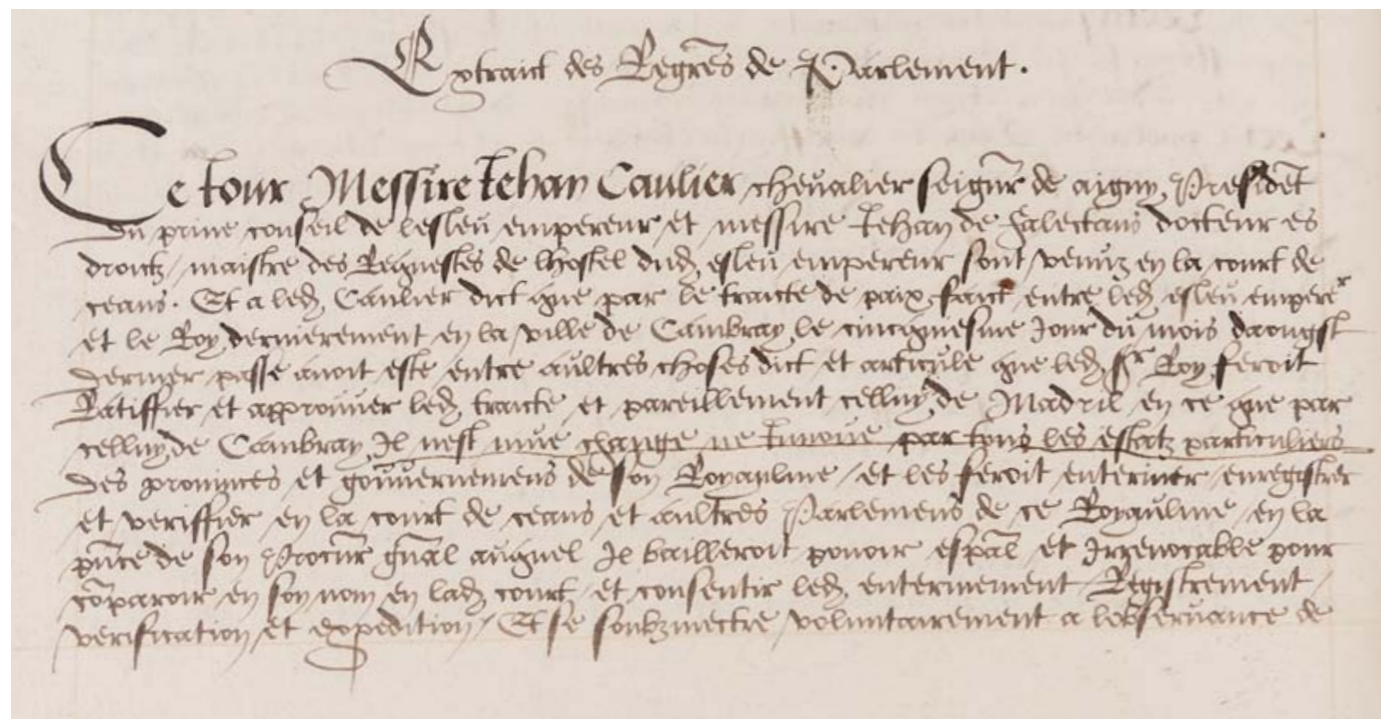 Extraict des Regrēs de Parlement.
Ce Jour Messire Jehan Caulier chevalier seigñr de aigny, Presidēt
du prive conseil de lesleu empereur et messire Jehan de Falectans docteur es
droictz, maistre des Requestes de lhostel dud. esleu empereur sont venuz en la court de
ceans. Et a led. Caulier dict que par le traicte de paix faict entre led. esleu emperer
et le Roy dernierement en la ville de Cambray, le cincquiesme Jour du mois daougst
dernier passe avoit este entre aultres choses dict et articule que led. sr Roy feroit
Ratiffier et approuver led. traicte et pareillement celluy de Madril en ce que par
celluy de Cambray Il nest mue change ne Innove par tous les estatz particuliers
des provinces et gouvernemens de son Royaulme, et les feroit enteriner enregistrer
et veriffier en la court de ceans et aultres Parlemens de ce Royaulme en la
pñce de son Procur̄ gñal auquel Il bailleroit povoir espāl et Irrevocable pour
cōparoir en son nom en lad. court, et consentir led. enterinement Registrement,
verification et expedition, Et se soubzmectre voluntairement a lobservance de